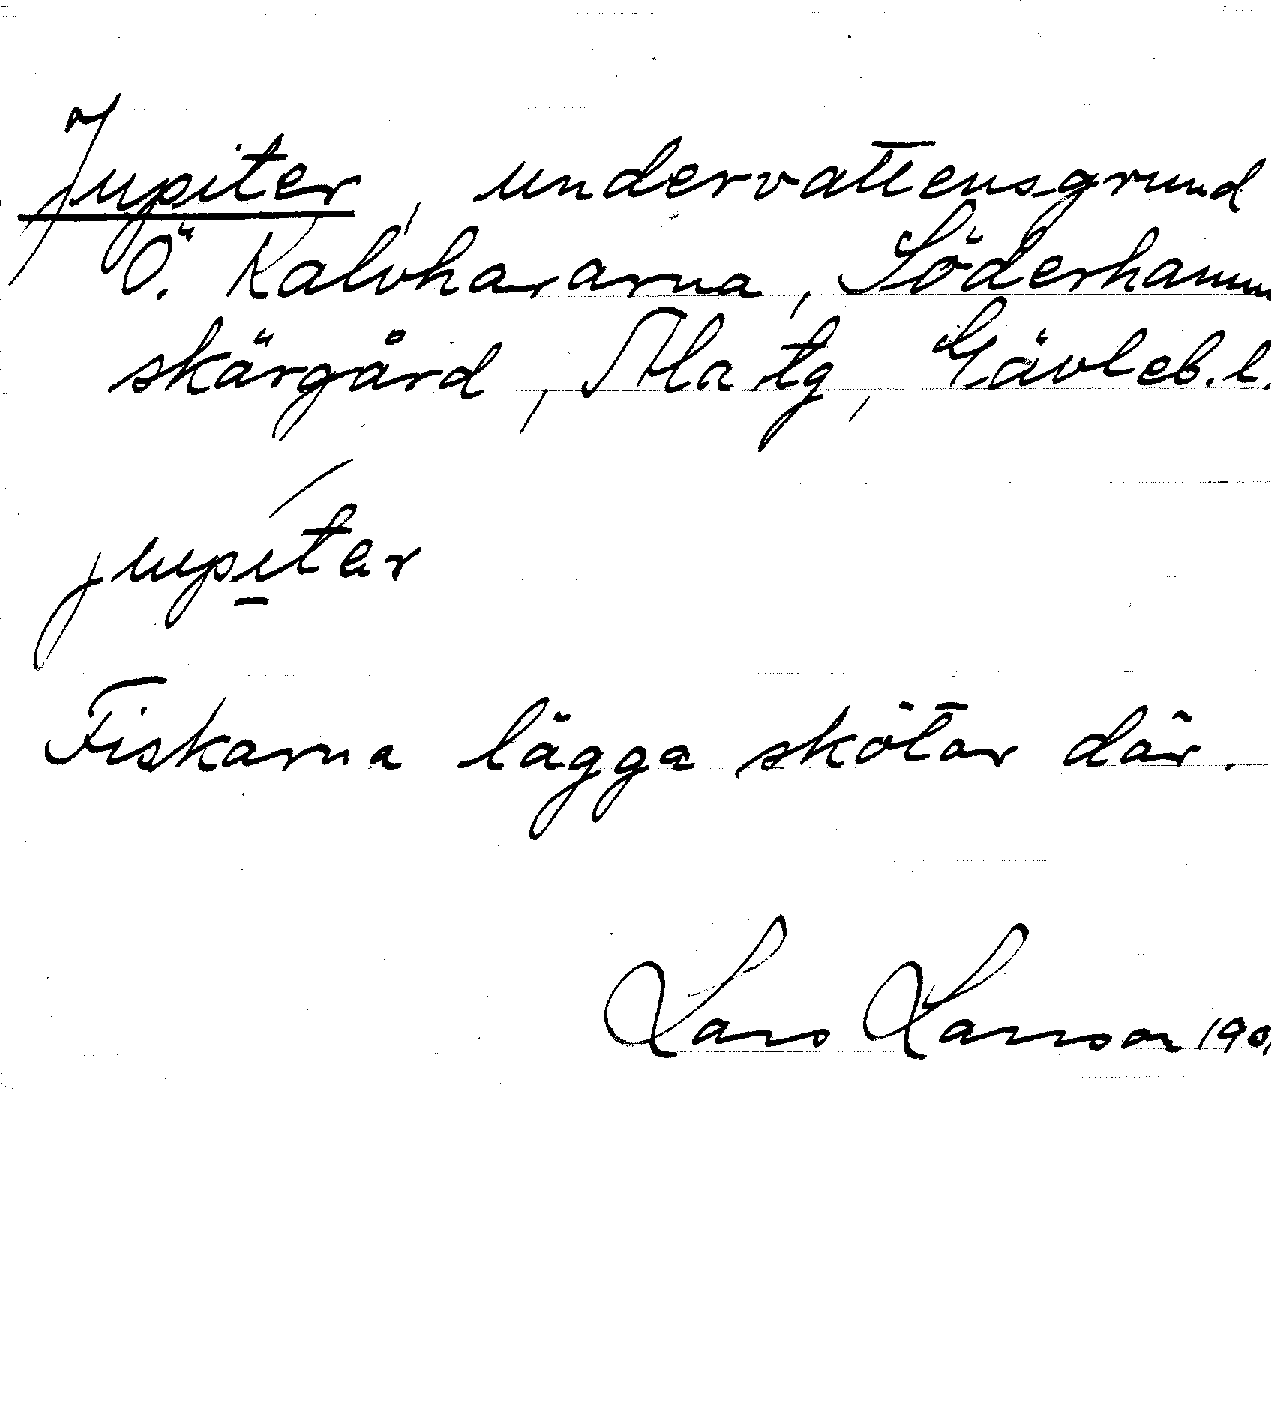 Jupiter, undervattensgrund
Ö. Kalvhararna, Söderhamns
skärgård, Ala tg, Gävleb. l.
jupítar
Fiskarna lägga skötar där.
Lars Larsson 190